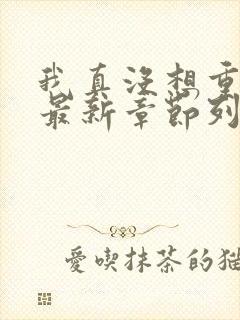 我真没想重
最新章節列
愛喫抹茶的猫